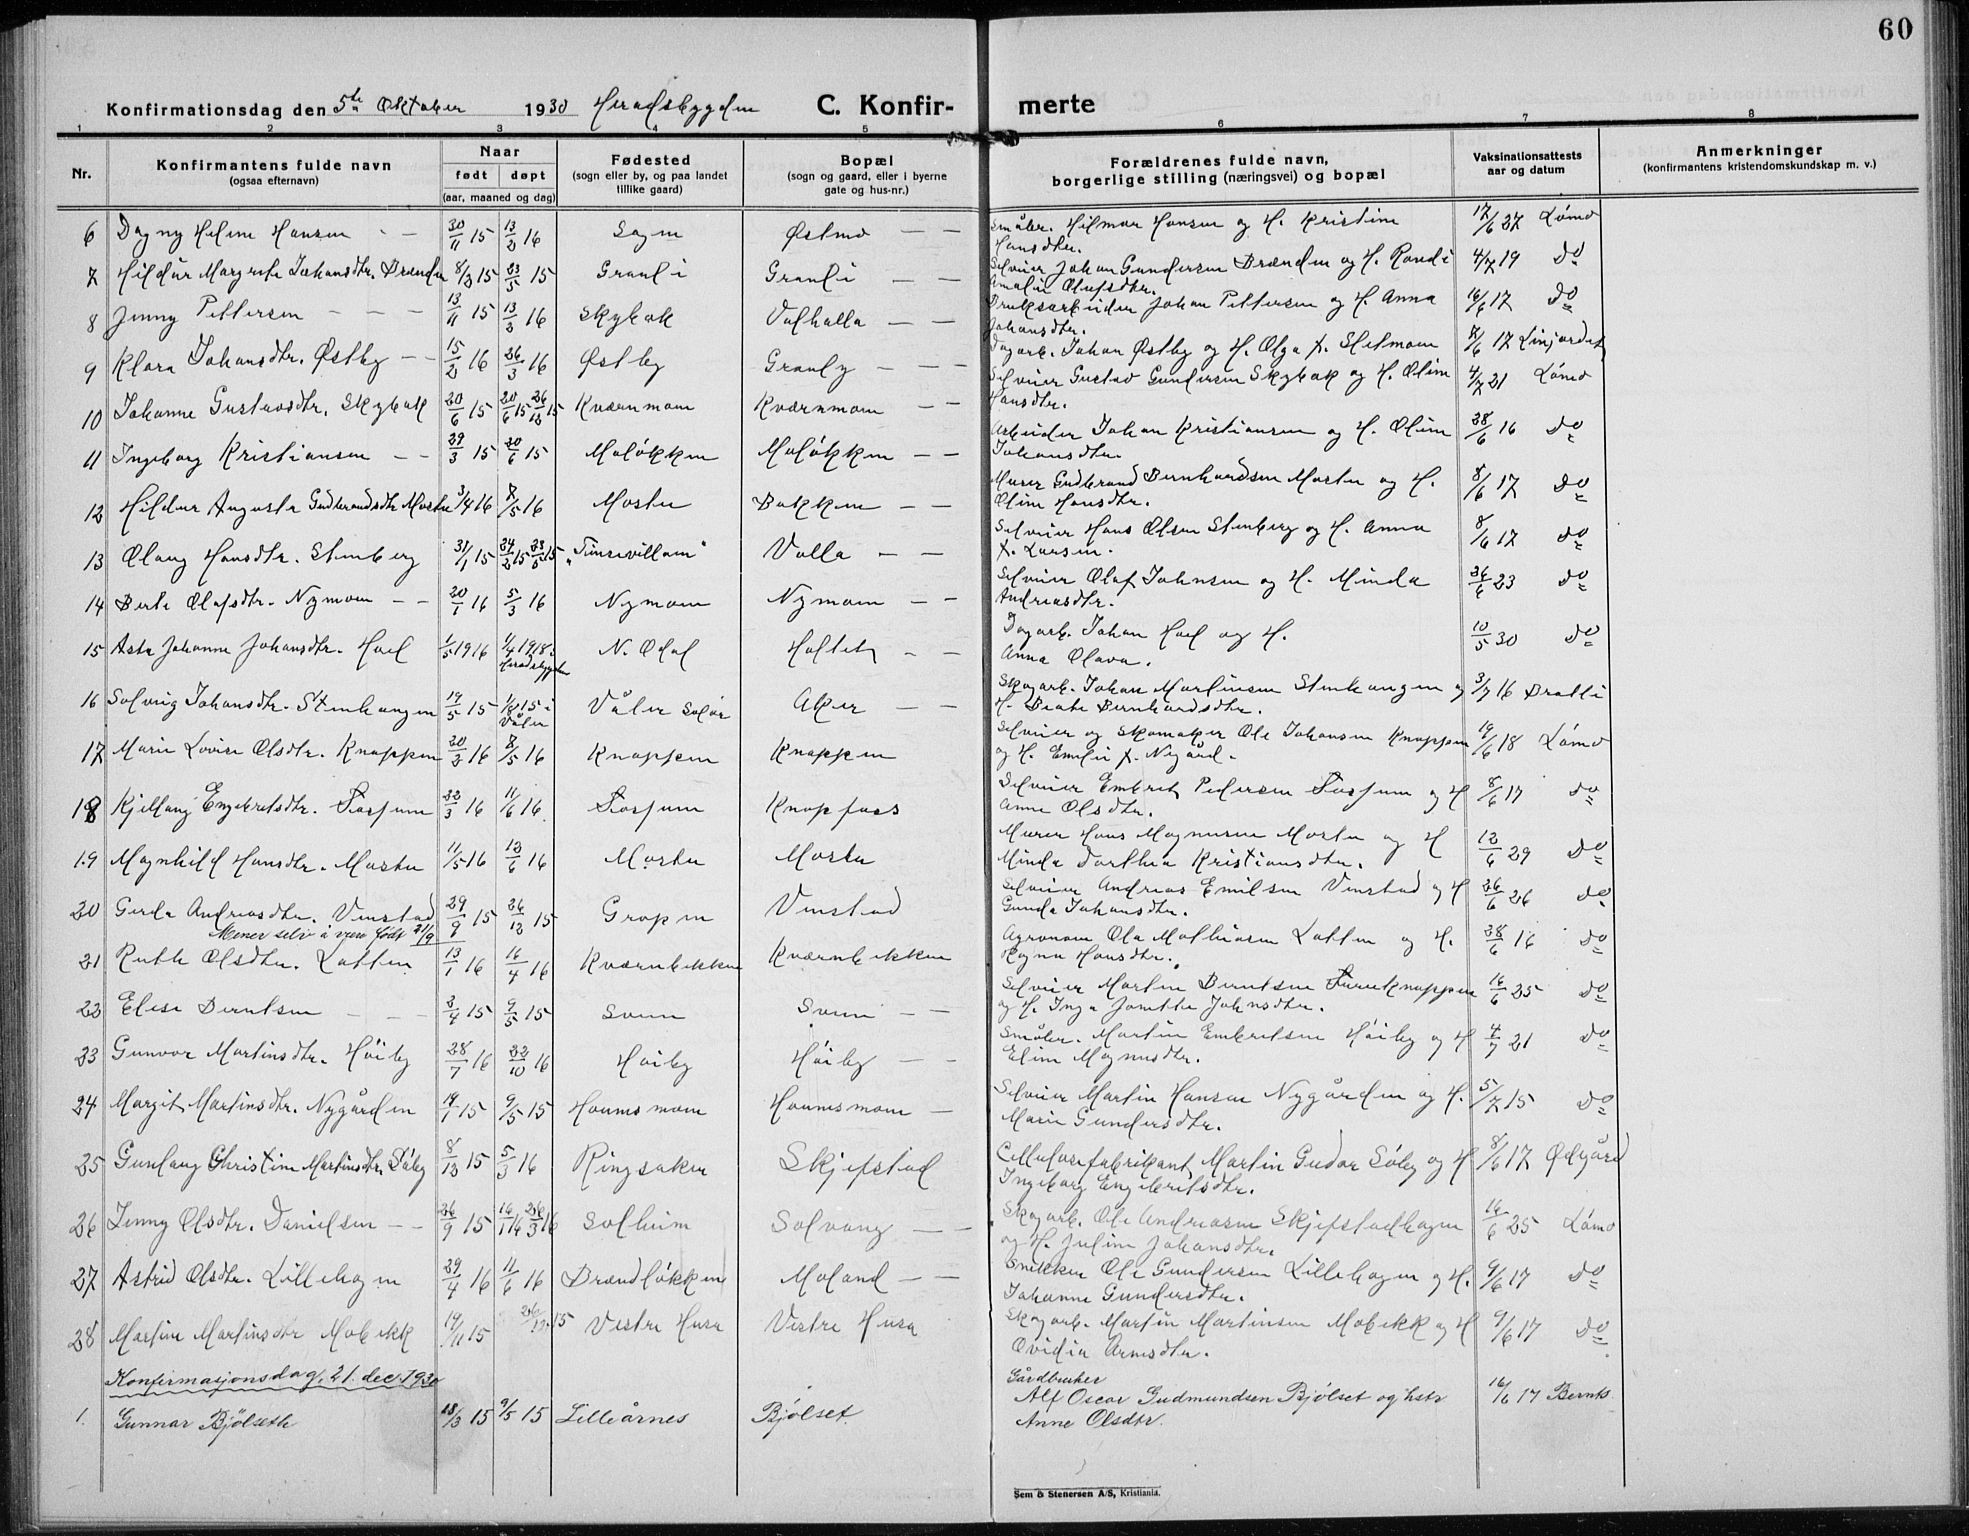 60
Konfirmationsdag den 5te Oktober 1930 Heradsbygden C. Konfir- merte
1 2 3 4 5 6 7 8
Nr. Konfirmantens fulde navn (ogsaa efternavn) Naar født døpt (aar, maaned og dag) Fødested (sogn eller by, og paa landet tillike gaard) Bopæl (sogn og gaard, eller i byerne gate og hus-nr.) Forældrenes fulde navn, borgerlige stilling (næringsvei) og bopæl Vaksinationsattests aar og datum Anmerkninger (konfirmantens kristendomskundskap m. v.)
6 Dagny Helene Hansen - — 30/11 15 13/2 16 Sagen Østmo — — Småbr. Hilmar Hansen og H. Kristine 17/6 27 Lømo
Hansdtr.
7 Hildur Margrete Johansdtr. Brænden 8/3 15 23/5 15 Granli Granli — — Selveier Johan Gundersen Brænden og H. Randi 4/7 19 do
Amalie Olufsdtr.
8 Jenny Pettersen — — — 13/11 15 13/3 16 Skybak Valhalla — — Bruksarbeider Johan Pettersen og H. Anna 16/6 17 do
Johansdtr.
9 Klara Johansdtr. Østby — — 15/2 16 26/3 16 Østby Granly — — — Dagarb. Johan Østby og H. Olga f. Sletmoen 8/6 17 Linjordet
10 Johanne Gustavsdtr. Skybak 20/6 15 20/6 15 26/12 15 Kværnmoen Kværnmoen — — Selveier Gustav Gundersen Skybak og H. Oline 4/7 21 Lømo
Hansdtr.
11 Ingeborg Kristiansen — — 29/3 15 20/6 15 Moløkken Moløkken — — Arbeider Johan Kristiansen og H. Oline 28/6 16 do
Johansdtr.
12 Hildur Augusta Gudbrandsdtr Moster 3/4 16 7/5 16 Moster Bakken — — Murer Gudbrand Bernhardsen Moster og H. 8/6 17 do
Oline Hansdtr.
13 Olaug Hansdtr. Stenberg 31/1 15 24/2 15 23/5 15 Valla — — Selveier Hans Olsen Stenberg og H. Anna 8/6 17 do
f. Larsen.
14 Berte Olafsdtr. Nymoen — — 20/1 16 5/3 16 Nymoen Nymoen — — Selveier Olaf Johnsen og H. Minda 26/6 23 do
Andreasdtr.
15 Asta Johanne Johansdtr. Hoel 1/5 1916 1/4 1918 i N. Odal Holtet — — Dagarb. Johan Hoel og H. 10/5 30 do
Heradsbygden Anna Olava.
16 Solveig Johansdtr. Stenhaugen 19/5 15 1/8 15 i Våler Solør Aker — — Skogarb. Johan Martinsen Stenhaugen og 3/7 16 Bratli
Våler H. Beate Bernhardsdtr.
17 Marie Lovise Olsdtr. Knappen 20/3 16 8/5 16 Knappen Knappen Selveier og Skomaker Ole Johansen Knappen 19/6 18 Lømo
og H. Emelie f. Nygård.
18 Kjellaug Engebretsdtr. Fossum 22/3 16 11/6 16 Fossum Knapfoss Selveier Embret Pedersen Fossum og H 8/6 17 do
Anne Olsdtr.
19 Magnhild Hansdtr. Moster 11/5 16 12/6 16 Moster Moster Murer Hans Magnusen Moster og H 12/6 29 do
Minda Dorthea Kristiansdtr.
20 Gerda Andreasdtr. Venstad 29/9 15 26/12 15 Gropen Venstad Selveier Andreas Emilsen Venstad og H 26/6 26 do
Mener selv å være født 21/9 Gunda Johansdtr.
21 Ruth Olsdtr. Latten 13/1 16 16/4 16 Kværnbekken Kværnbekken Agronom Ole Mathiasen Latten og H. 28/6 16 do
Ragna Hansdtr.
22 Elise Berntsen — — — 3/4 15 9/5 15 Sveen Sveen — — Selveier Martin Berntsen Furuknappen 16/6 25 do
og H. Inga Jonette Johnsdtr.
23 Gunvor Martinsdtr. Høiby 28/7 16 22/10 16 Høiby Høiby — — Småbr. Martin Embretsen Høiby og H 4/7 21 do
Eline Magnusdtr.
24 Margit Martinsdtr. Nygården 14/1 15 9/5 15 Hounsmoen Hounsmoen — Selveier Martin Hansen Nygården og H. 5/7 15 do
Marie Gundersdtr.
25 Gunlaug Christine Martinsdtr. Søby 8/12 15 5/3 16 Ringsaker Skjefstad Cellulosefabrikant Martin Gudar Søby og H 8/6 17 Ødegård
Ingeborg Engebretsdtr.
26 Jenny Olsdtr. Danielsen — — 26/9 15 16/1 16 26/3 16 Solheim Solvang — — Skogarb. Ole Andreasen Skjefstadhagen 16/6 25 Lømo
og H. Juline Johansdtr.
27 Astrid Olsdtr. Lillehagen 29/4 16 11/6 16 Brændløkken Moland — — Snikker Ole Gundersen Lillehagen og H. 9/6 17 do
Johanne Gundersdtr.
28 Martine Martinsdtr Mobekk 19/11 15 26/12 15 Vestre Husa Vestre Husa Skogarb. Martin Martinsen Mobekk og H 9/6 17 do
Ovidia Arnesdtr.
Konfirmasjonsdag, 21. dec. 1930
1. Gunnar Bjølseth 18/3 15 9/5 15 Lilleårnes Bjølset. Gårdbruker
Alf Oscar Gudmundsen Bjølset og hstr 16/6 17 Bernts
Anne Olsdtr.
Sem & Stenersen A/S, Kristiania.